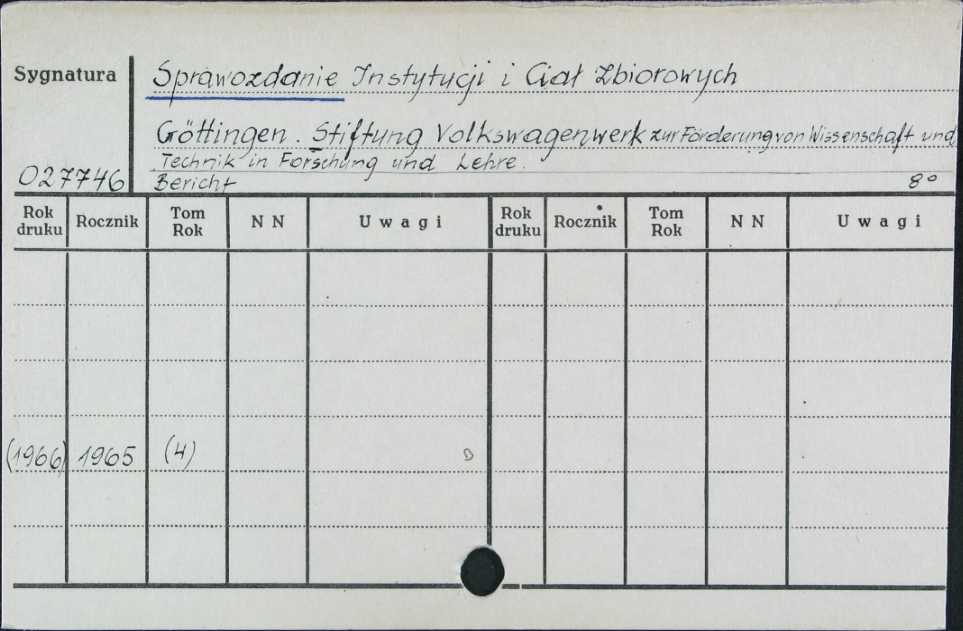 Sygnatura
Sprawozdanie Instytucji i Ciał Zbiorowych
Göttingen. Stiftung Volkswagenwerk zur Förderung von Wissenschaft und
Technik in Forschung und Lehre.
027746 Bericht 8°
Rok druku Rocznik Tom Rok NN Uwagi Rok druku Rocznik Tom Rok NN Uwagi
(1966) 1965 (4) B